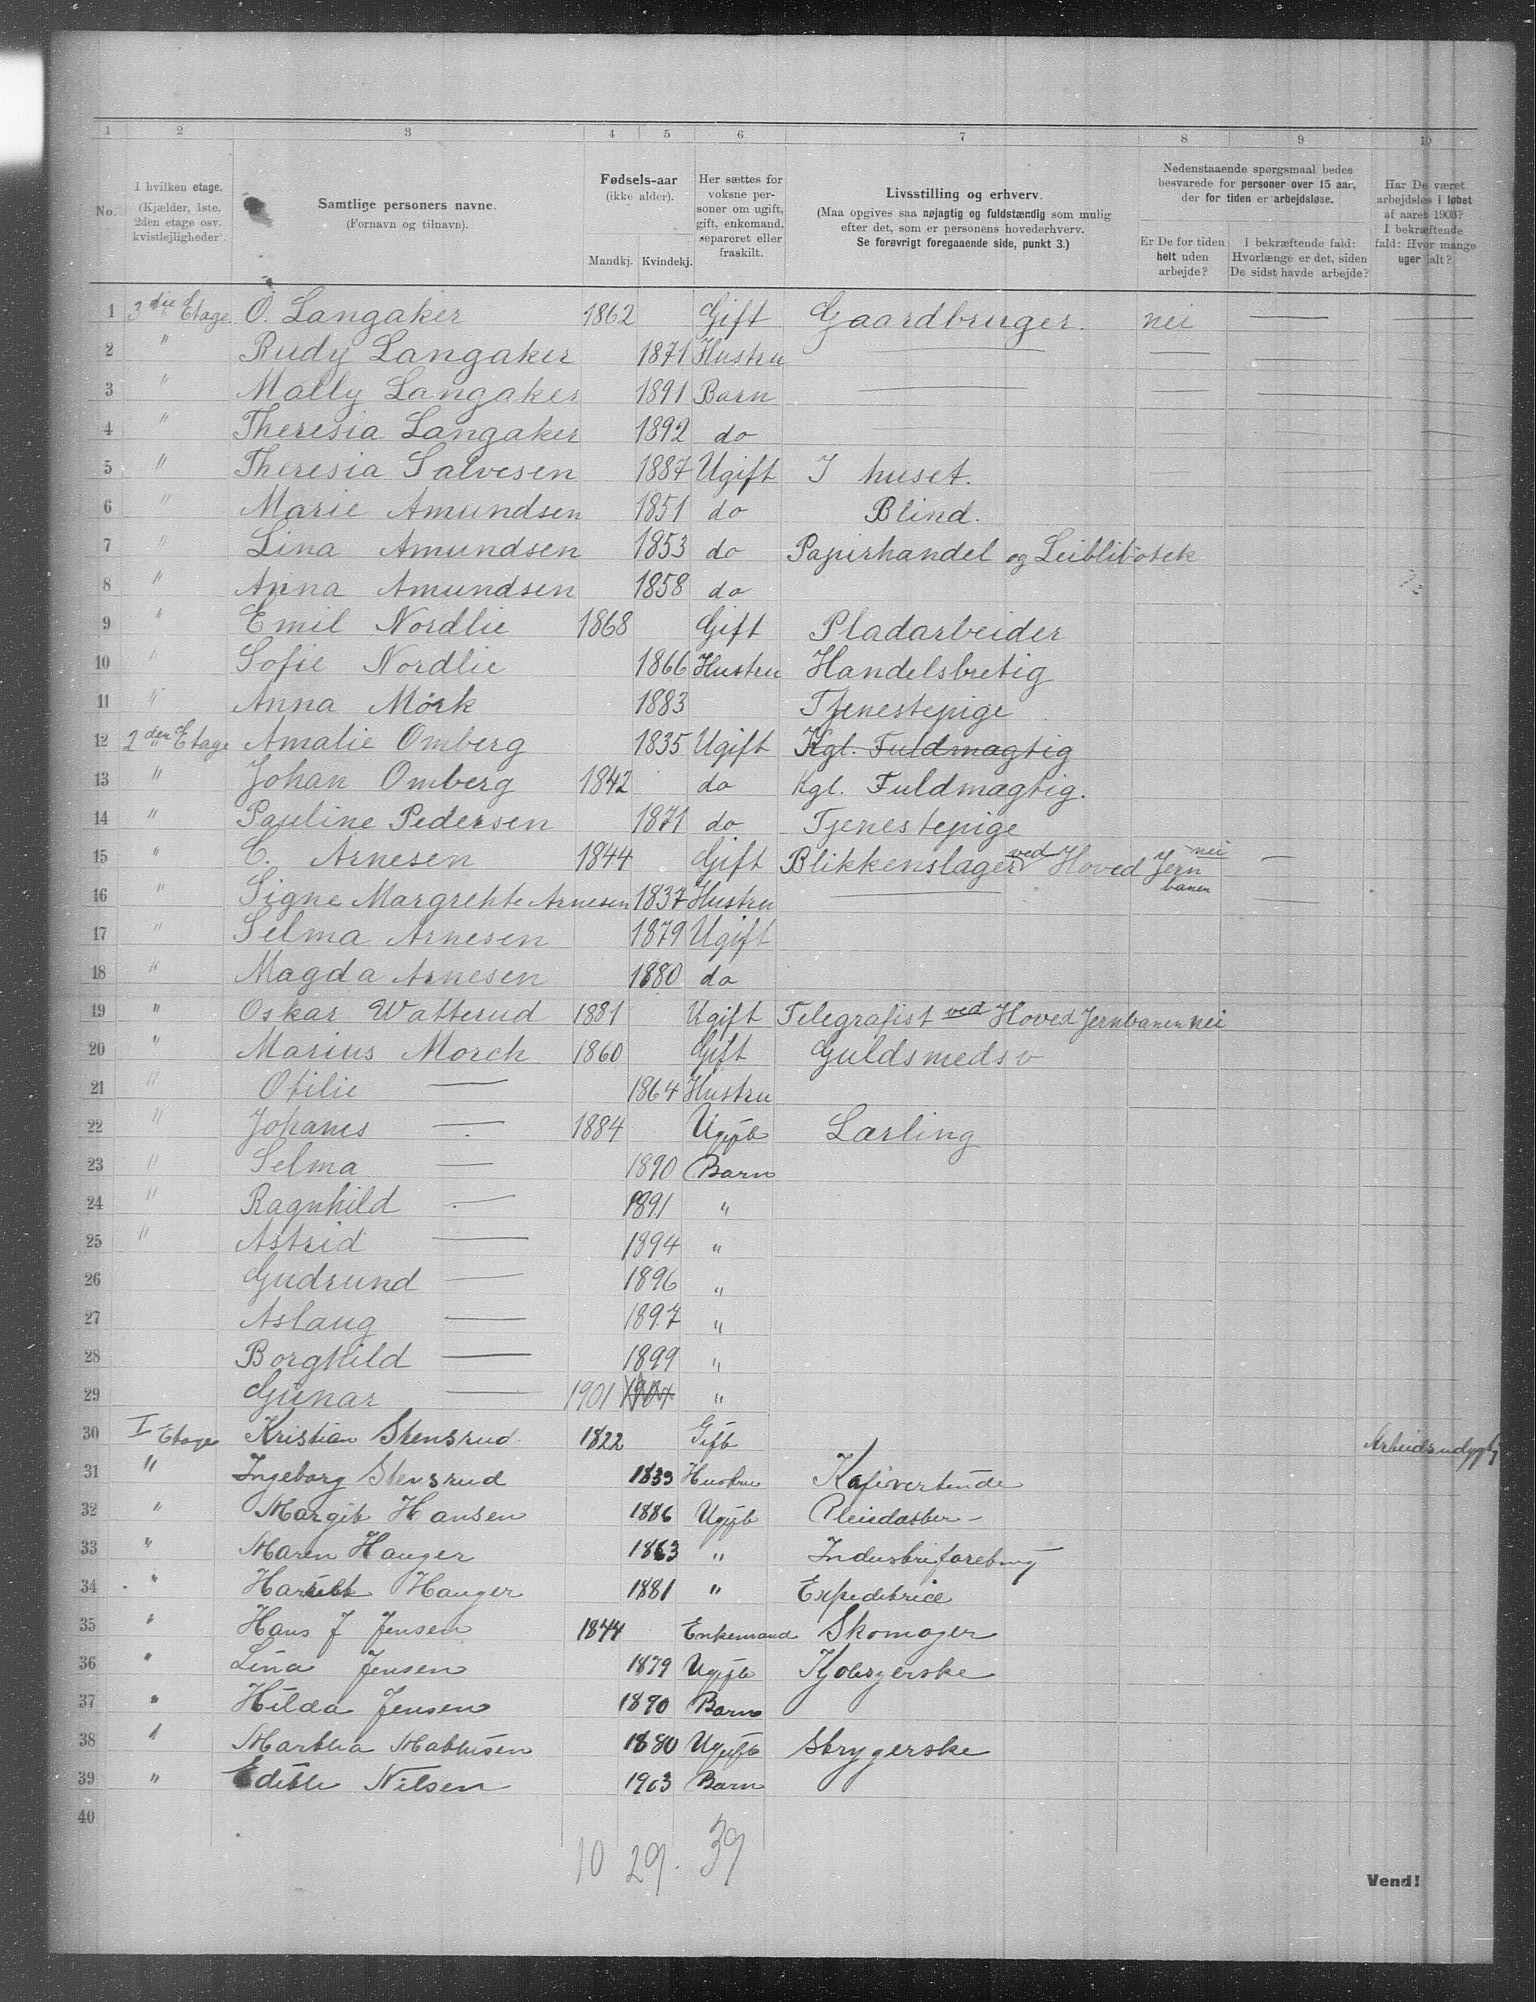 1 2 3 4 5 6 7 8 9 10
No.
I hvilken etage.
(Kjælder, 1ste, 2den etage osv. kvistlejligheder).
Samtlige personers navne.
(Fornavn og tilnavn).
Fødsels-aar
(ikke alder).
Mandkj. Kvindekj.
Her sættes for voksne personer om ugift, gift, enkemand, separeret eller fraskilt.
Livsstilling og erhverv.
(Maa opgives saa nøjagtig og fuldstændig som mulig
efter det, som er personens hovederhverv.
Se forøvrigt foregaaende side, punkt 3.)
Nedenstaaende spørgsmaal bedes
besvarede for personer over 15 aar,
der for tiden er arbejdsløse.
Er De for tiden helt uden arbejde?
I bekræftende fald: Hvorlænge er det, siden De sidst havde arbejde?
Har De været arbejdsløs i løbet af aaret 1903? I bekræftende fald: Hvor mange uger ialt?
1 3die Etage O. Langaker 1862 Gift Gaardbruger. nei — —
2 " Rudy Langaker 1871 Hustru — — —
3 " Mally Langaker 1891 Barn — — —
4 " Theresia Langaker 1892 do
5 " Theresia Salvesen 1887 Ugift I huset.
6 " Marie Amundsen 1851 do Blind.
7 " Lina Amundsen 1853 do Papirhandel og Leiblibotek
8 " Anna Amundsen 1858 do
9 " Emil Nordlie 1868 Gift Pladarbeider
10 " Sofie Nordlie 1866 Hustru Handelsbretig
11 " Anna Mörk 1883 Tjenestepige
12 2den Etage Amalie Omberg 1835 Ugift Kgl. Fuldmagtig
13 " Johan Omberg 1842 do Kgl. Fuldmagtig.
14 " Pauline Pedersen 1871 do Tjenestepige
15 " C. Arnesen 1844 Gift Blikkenslager ved Hoved Jern banen nei —
16 " Signe Margrehte Arnesen 1837 Hustru —
17 " Selma Arnesen 1879 Ugift
18 " Magda Arnesen 1880 do
19 " Oskar Watterud 1881 Ugift Telegrafist ved Hoved Jernbanen nei
20 " Marius Morch 1860 Gift Guldsmedsv
21 " Otilie — 1864 Hustru
22 " Johanes — 1884 Ugift Lærling
23 " Selma — 1890 Barn
24 " Ragnhild — 1891 "
25 " Astrid — 1894 "
26 Gudrund — 1896 "
27 Aslaug — 1897 "
28 Borghild — 1899 "
29 Gunar — 1901 "
30 I Etage Kristian Stensrud 1822 Gift
31 " Ingeborg Stensrud 1833 Hustru Kafévertinde
32 " Margit Hansen 1886 Ugift
33 " Maren Hauger 1863 "
34 " Hauger 1881 " Expeditrice
35 " Hans J Jensen 1844 Enkemand Skomager
36 " Lina Jensen 1879 Ugift Kjolsyerske
37 " Hilda Jensen 1890 Barn
38 " Martha Mathisen 1880 Ugift Strygerske
39 " Edith Nilsen 1903 Barn
40
10 29. 39
Vend!